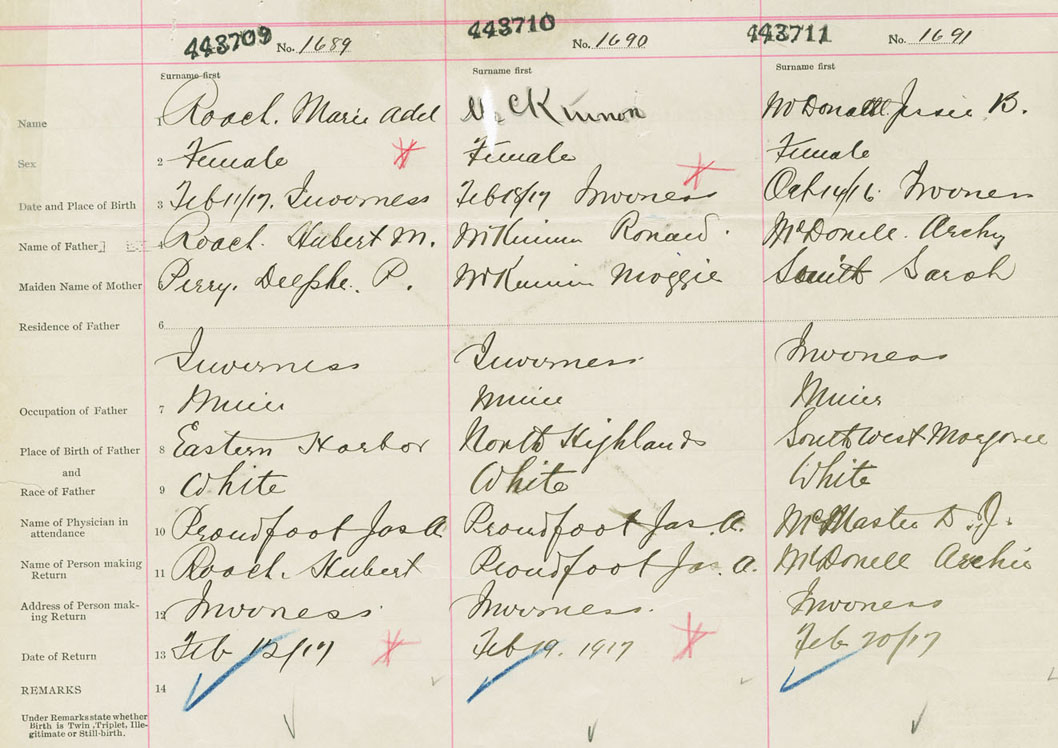 443709 No. 1689 443710 No. 1690 443711 No. 1691
Surname first Surname first Surname first
Name 1 Roach. Marie Adel McKinnon McDonald Jessie B.
Sex 2 Female Female Female
Date and Place of Birth 3 Feb 11/17. Inverness Feb 18/17 Inverness Oct 14/16. Inverness
Name of Father 4 Roach. Hubert M. McKinnon Ronald. McDonell. Archy
Maiden Name of Mother Perry. P. McKinnon Maggie Smith Sarah
Residence of Father 6
Inverness Inverness Inverness
Occupation of Father 7 Miner Miner Miner
Place of Birth of Father 8 Eastern Harbor North Highlands Southwest Margaree
and
Race of Father 9 White White White
Name of Physician in
attendance 10 Proudfoot Jas A. Proudfoot Jas. A. McMaster D. J.
Name of Person making
Return 11 Roach. Hubert Proudfoot Jas. A. McDonell Archie
Address of Person mak-
ing Return 12 Inverness. Inverness. Inverness
Date of Return 13 Feb 12/17 Feb 19. 1917 Feb 20/17
REMARKS 14
Under Remarks state whether
Birth is Twin, Triplet, Ille-
gitimate or Still-birth.